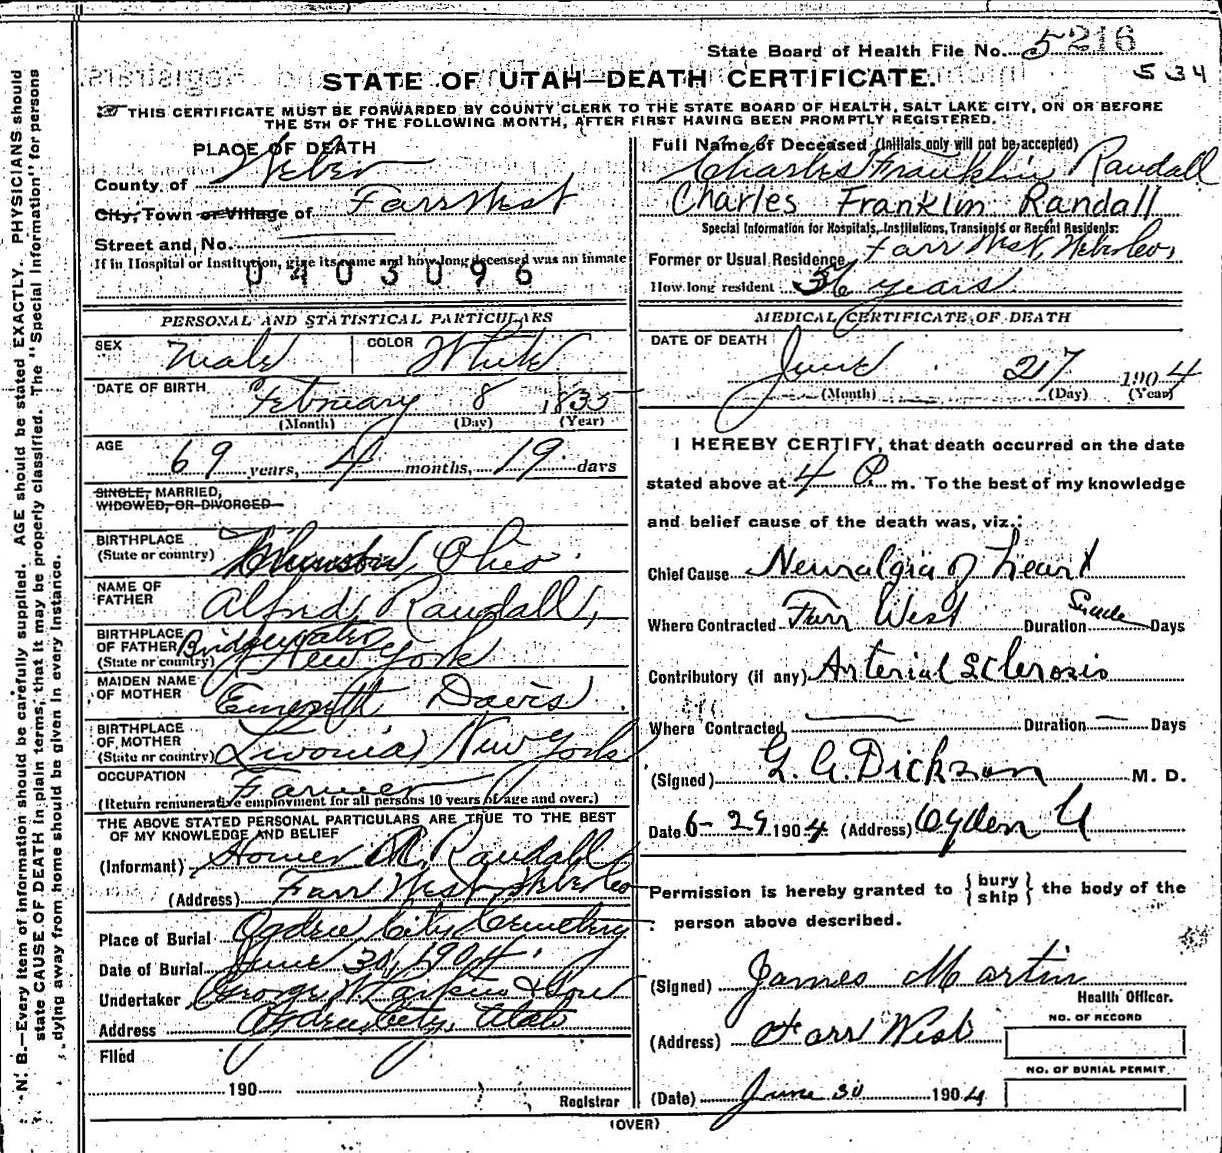 State Board of Health File No. 5216
534
STATE OF UTAH—DEATH CERTIFICATE.
THIS CERTIFICATE MUST BE FORWARDED BY COUNTY CLERK TO THE STATE BOARD OF HEALTH, SALT LAKE CITY, ON OR BEFORE
THE 5TH OF THE FOLLOWING MONTH, AFTER FIRST HAVING BEEN PROMPTLY REGISTERED.
PLACE OF DEATH
County of Weber
City, Town or Village of Farr West
Street and No.
If in Hospital or Institution, give its name and how long deceased was an inmate
0403096
PERSONAL AND STATISTICAL PARTICULARS
SEX Male COLOR White
DATE OF BIRTH February 8 1835
(Month) (Day) (Year)
AGE 69 years, 4 months, 19 days
SINGLE, MARRIED,
WIDOWED, OR DIVORCED
BIRTHPLACE
(State or country) Ohio
NAME OF
FATHER Alfred Randall,
BIRTHPLACE
OF FATHER
(State or country) Bridgewater New York
MAIDEN NAME
OF MOTHER Emerett Davis
BIRTHPLACE
OF MOTHER
(State or country) Livonia, New York
OCCUPATION Farmer
(Return remunerative employment for all persons 10 years of age and over.)
THE ABOVE STATED PERSONAL PARTICULARS ARE TRUE TO THE BEST
OF MY KNOWLEDGE AND BELIEF
(Informant) Homer Randall
(Address) Farr West Weber Co
Place of Burial Ogden City Cemetery
Date of Burial June 30, 1904.
Undertaker George W. Larkin & Son
Address Ogden City, Utah
Filed
190
Registrar
Full Name of Deceased (Initials only will not be accepted)
Charles Franklin Randall
Charles Franklin Randall
Special Information for Hospitals, Institutions, Transients or Recent Residents:
Former or Usual Residence Farr West, Weber Co,
How long resident 36 years
MEDICAL CERTIFICATE OF DEATH
DATE OF DEATH June 27 1904
(Month) (Day) (Year)
I HEREBY CERTIFY, that death occurred on the date
stated above at 4 P. m. To the best of my knowledge
and belief cause of the death was, viz.:
Chief Cause Neuralgia of heart
Where Contracted Farr West Duration Days
Contributory (if any) Arterial Sclerosis
Where Contracted — Duration — Days
(Signed) G. G. Dickson M. D.
Date 6-29 1904 (Address) Ogden U
Permission is hereby granted to { bury ship } the body of the
person above described.
(Signed) James Martin
Health Officer.
(Address) Farr West
NO. OF RECORD
NO. OF BURIAL PERMIT
(Date) June 30 1904
(OVER)
N. B.—Every item of information should be carefully supplied. AGE should be stated EXACTLY. PHYSICIANS should
state CAUSE OF DEATH in plain terms, that it may be properly classified. The "Special Information" for persons
dying away from home should be given in every instance.